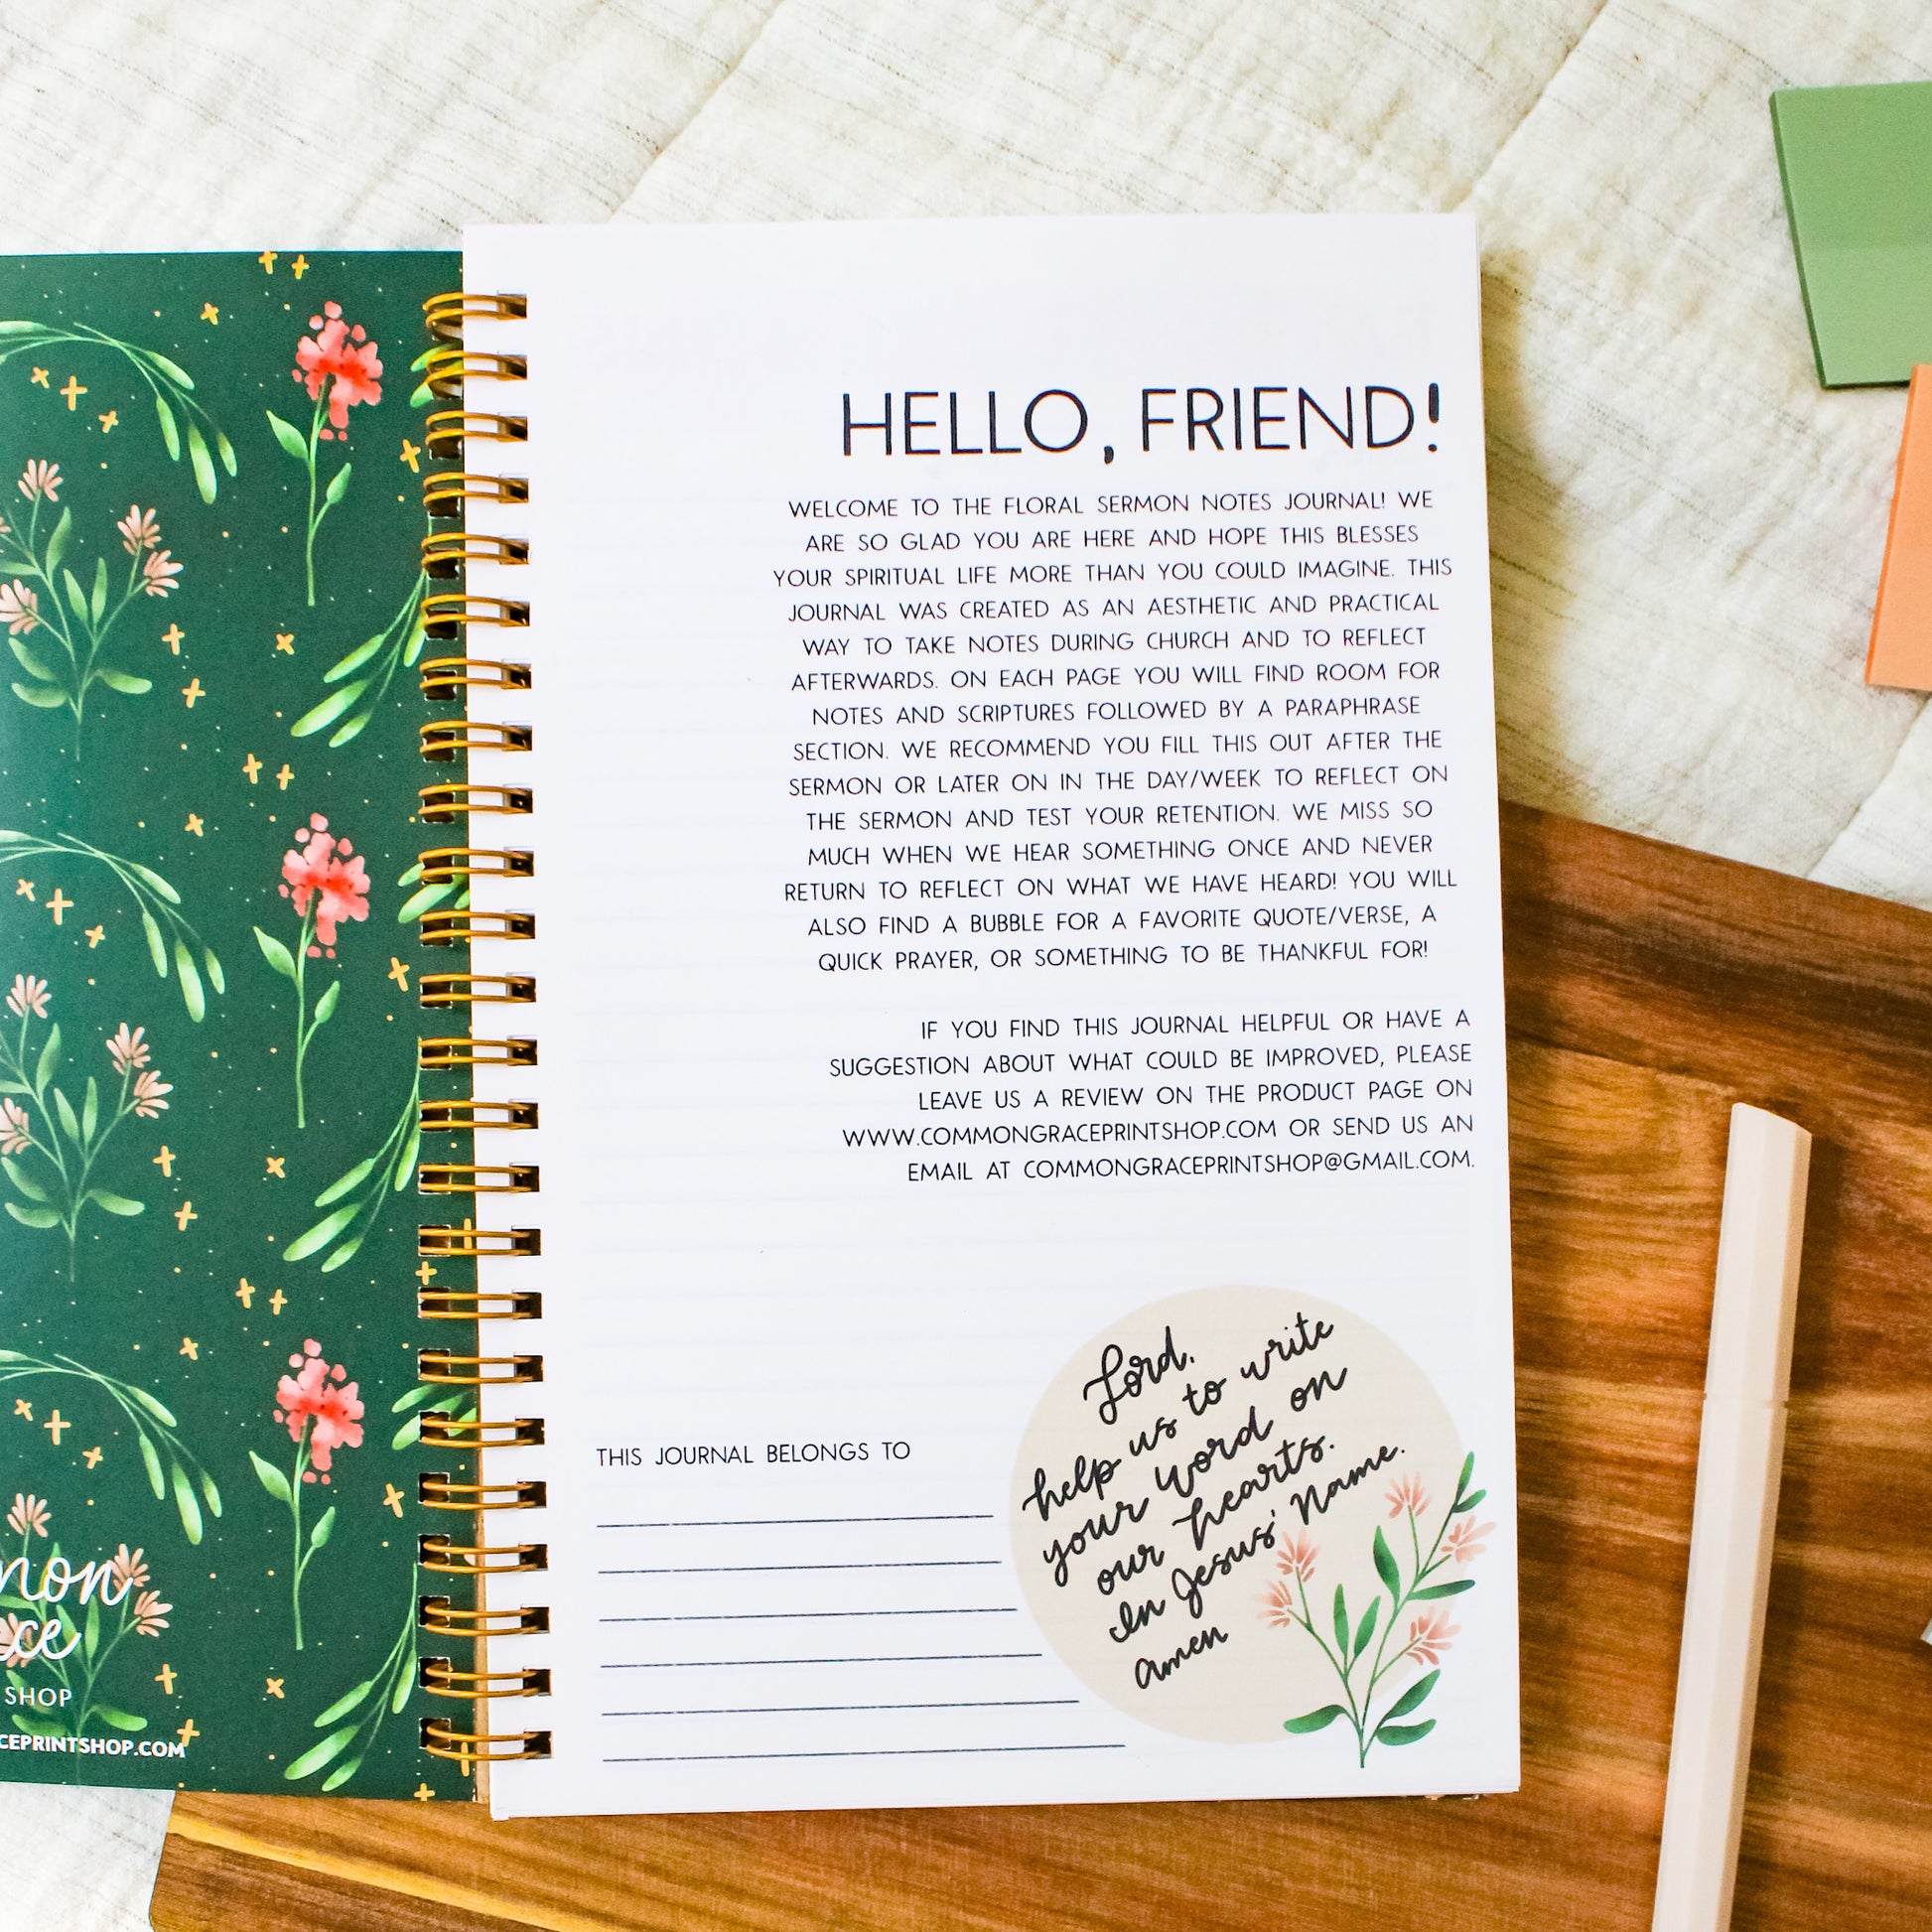 HELLO, FRIEND!
WELCOME TO THE FLORAL SERMON NOTES JOURNAL! WE
ARE SO GLAD YOU ARE HERE AND HOPE THIS BLESSES
YOUR SPIRITUAL LIFE MORE THAN YOU COULD IMAGINE. THIS
JOURNAL WAS CREATED AS AN AESTHETIC AND PRACTICAL
WAY TO TAKE NOTES DURING CHURCH AND TO REFLECT
AFTERWARDS. ON EACH PAGE YOU WILL FIND ROOM FOR
NOTES AND SCRIPTURES FOLLOWED BY A PARAPHRASE
SECTION. WE RECOMMEND YOU FILL THIS OUT AFTER THE
SERMON OR LATER ON IN THE DAY/WEEK TO REFLECT ON
THE SERMON AND TEST YOUR RETENTION. WE MISS SO
MUCH WHEN WE HEAR SOMETHING ONCE AND NEVER
RETURN TO REFLECT ON WHAT WE HAVE HEARD! YOU WILL
ALSO FIND A BUBBLE FOR A FAVORITE QUOTE/VERSE, A
QUICK PRAYER, OR SOMETHING TO BE THANKFUL FOR!
IF YOU FIND THIS JOURNAL HELPFUL OR HAVE A
SUGGESTION ABOUT WHAT COULD BE IMPROVED, PLEASE
LEAVE US A REVIEW ON THE PRODUCT PAGE ON
WWW.COMMONGRACEPRINTSHOP.COM OR SEND US AN
EMAIL AT COMMONGRACEPRINTSHOP@GMAIL.COM.
THIS JOURNAL BELONGS TO
Lord,
help us to write
your word on
our hearts.
In Jesus' Name.
Amen
SHOP
CEPRINTSHOP.COM